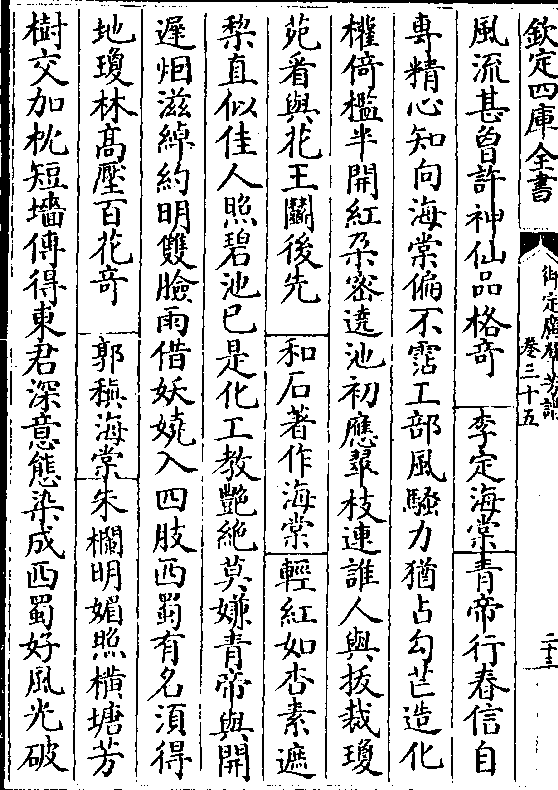 欽定四庫全書
御定廣羣芳譜
卷三十五
二十三
風流甚曾許神仙品格奇　李定海棠青帝行春信自
專精心知向海棠偏不霑工部風騷力猶占勾芒造化
權倚檻半開紅朶密遶池初應翠枝連誰人與拔栽瓊
苑看與花王鬭後先　和石著作海棠　輕紅如杏素遮
棃直似佳人照碧池已是化工教艶絶莫嫌青帝與開
遲烟滋綽約明雙臉雨借妖嬈入四肢西蜀有名湏得
地瓊林髙壓百花竒　郭稹海棠朱欄明媚照橫塘芳
樹交加枕短墻傳得東君深意態染成西蜀好風光破